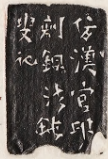 仿漢官印
銅法鈍
叟記